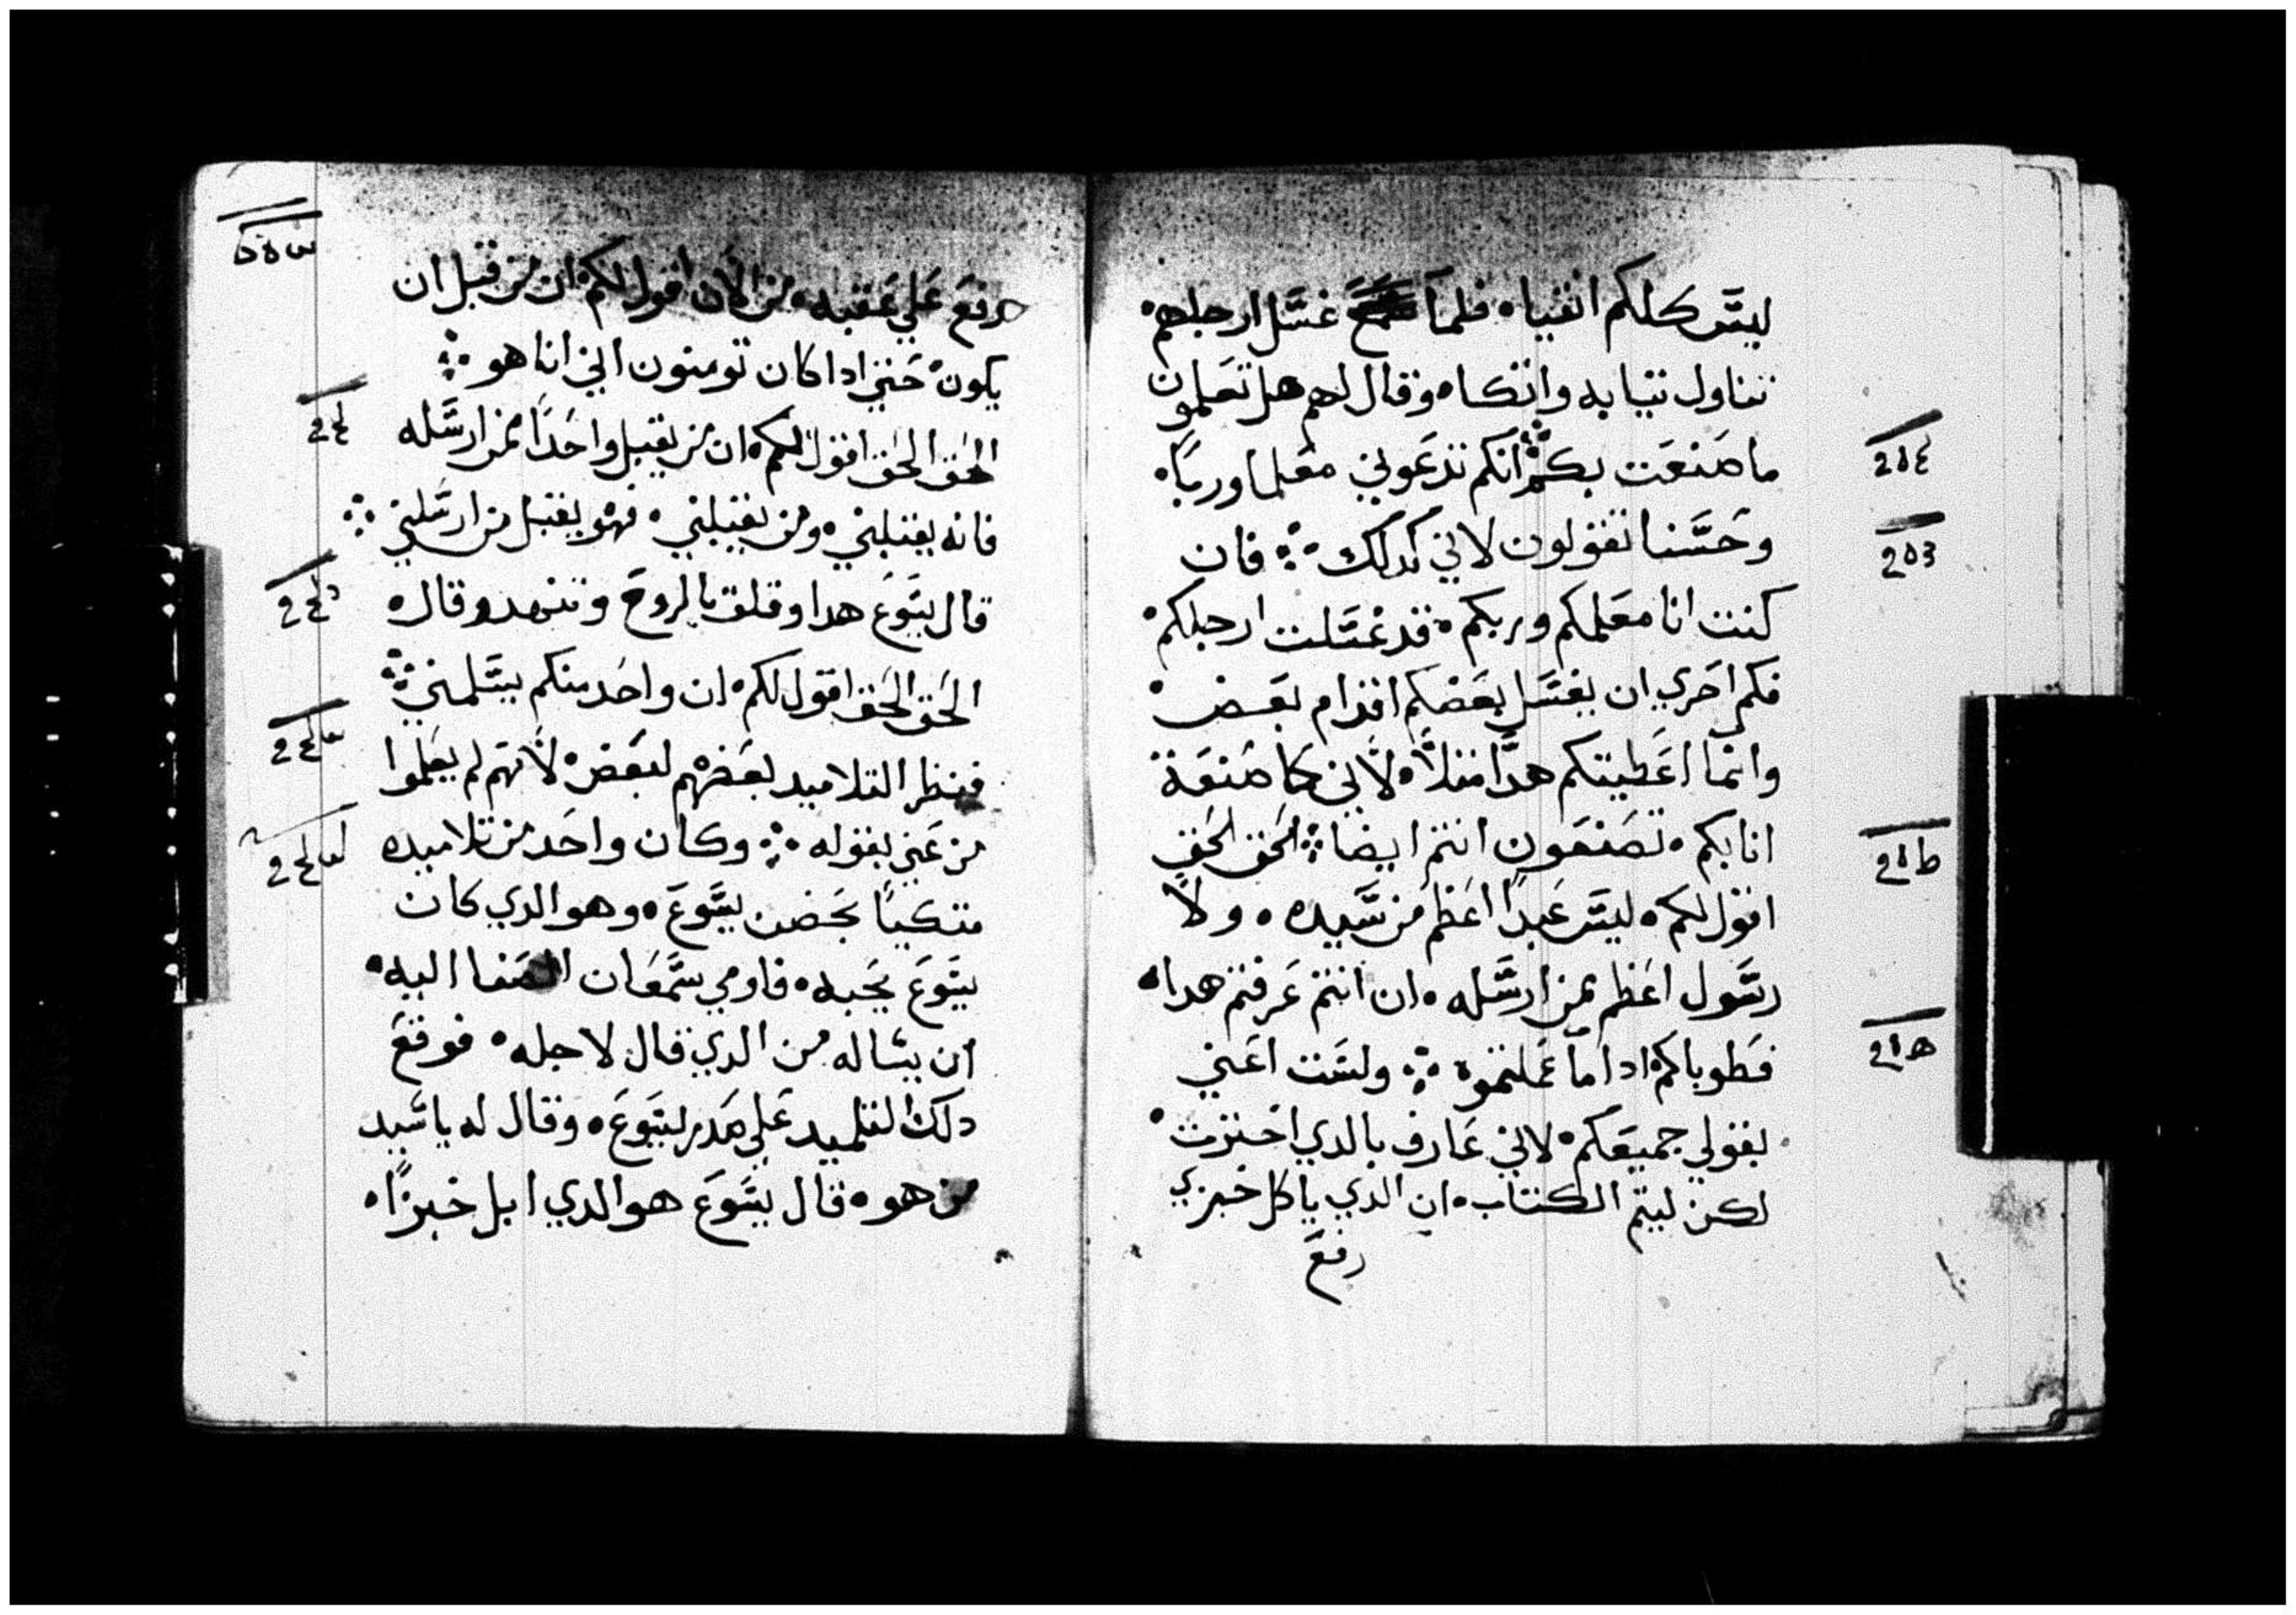 ليس كلكم انقياه فلما غسل ارجلهم
تناول تيابه واتكاه وقال لهم هل تعلمون
ما صنعت بكم انكم تدعوني معلما وربا
وحسنا تقولون لاني كدلك فان
كنت انا معلمكم وربكم قد غسلت ارجلكم
فكم احري ان يغسل بعضكم اقدام بعض
وانما اعطيتكم هدا متلا لاني كما صنعة
انا بكم تصنعون انتم ايضا الحق الحق
اقول لكم ليس عبدا اعظم من سيده ولا
رسول اعظم ممن ارسله ان انتم عرفتم هدا
فطوباكم ادا ما عملتموه ولست اعني
بقولي جميعكم لاني عارف بالدي اخترت
لكن ليتم الكتاب ان الدي ياكل خبزي
رفع
رفع علي عقبه من الان اقول لكم ان من قبل ان
يكون حتي ادا كان تومنون اني انا هو
الحق الحق اقول لكم ان من يقبل واحدا ممن ارسله
فانه يقبلني ومن يقبلني فهو يقبل من ارسلني
قال يسوع هدا وقلق بالروح وتنهد وقال
الحق الحق اقول لكم ان واحد منكم يسلمني
فنظر التلاميد بعضهم لبعض لانهم لم يعلموا
من عني بقوله وكان واحد من تلاميده
متكيا بحضن يسوع وهو الدي كان
يسوع يحبه فاومي سمعان الصفا اليه
ان يساله من الدي قال لاجله فوقع
دلك التلميد علي صدر يسوع وقال له يا سيد
من هو قال يسوع هو الدي ابل خبزا